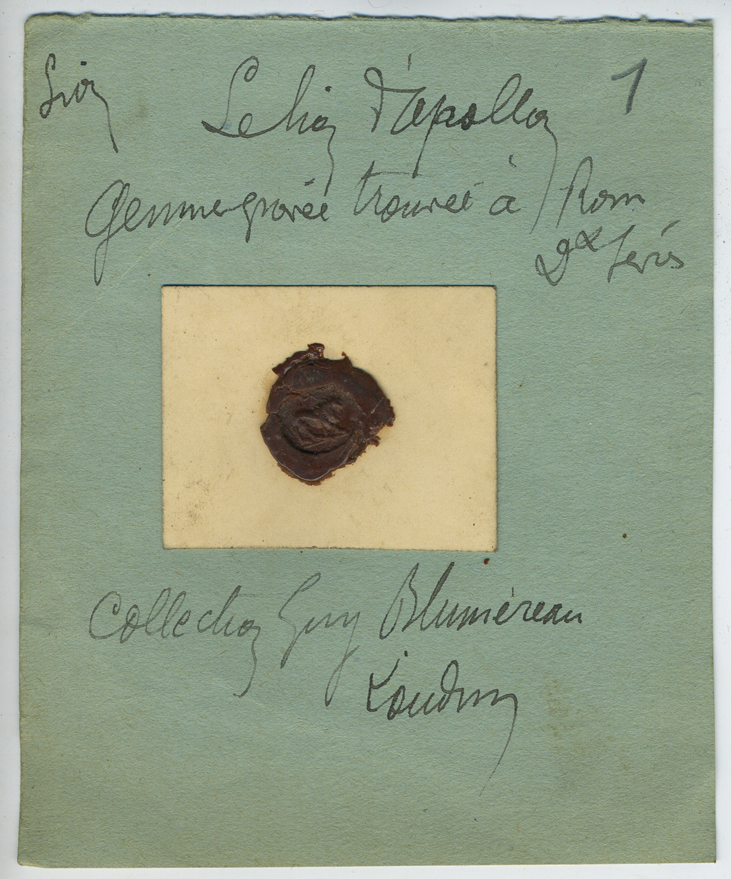 Lion
Le lion d'Apollon
1
Gemme gravée trouvée à Rom
Collection Guy Blumereau
Loudun